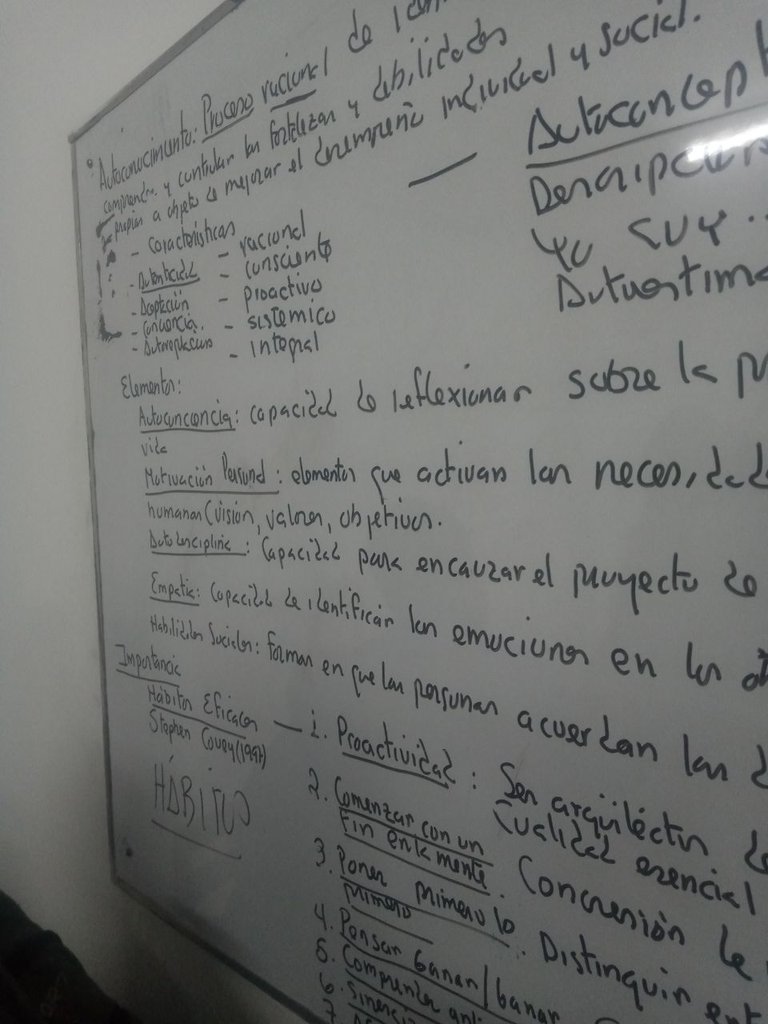 • Autoconocimiento: Proceso racional de iden
comprender y controlar las fortalezas y debilidades
propias a objeto de mejorar el desempeño individual y social.
- Características
- racional
- Autenticidad
- consciente
- Aceptación
- proactivo
- Conciencia.
- sistémico
- integral
— Autoconcept
Descripción
Yo soy...
Autoestima
Elementos:
Autoconciencia: capacidad de reflexionar sobre la pr
vida
Motivación Personal: elementos que activan las necesidad
humanas (visión, valores, objetivos.
Autodisciplina: Capacidad para encauzar el proyecto de
Empatía: Capacidad de identificar las emociones en los
Habilidades Sociales: formas en que las personas acuerdan las
Importancia
Hábitos Eficaces
Stephen Covey (1997)
HÁBITOS
— 1. Proactividad: Ser arquitectos de
Cualidad esencial
2. Comenzar con un
fin en la mente. Concresión de
3. Poner primero lo
primero. Distinguir ent
4. Pensar Ganar/ganar
5. Comprender ant
6. Sinergi
7.